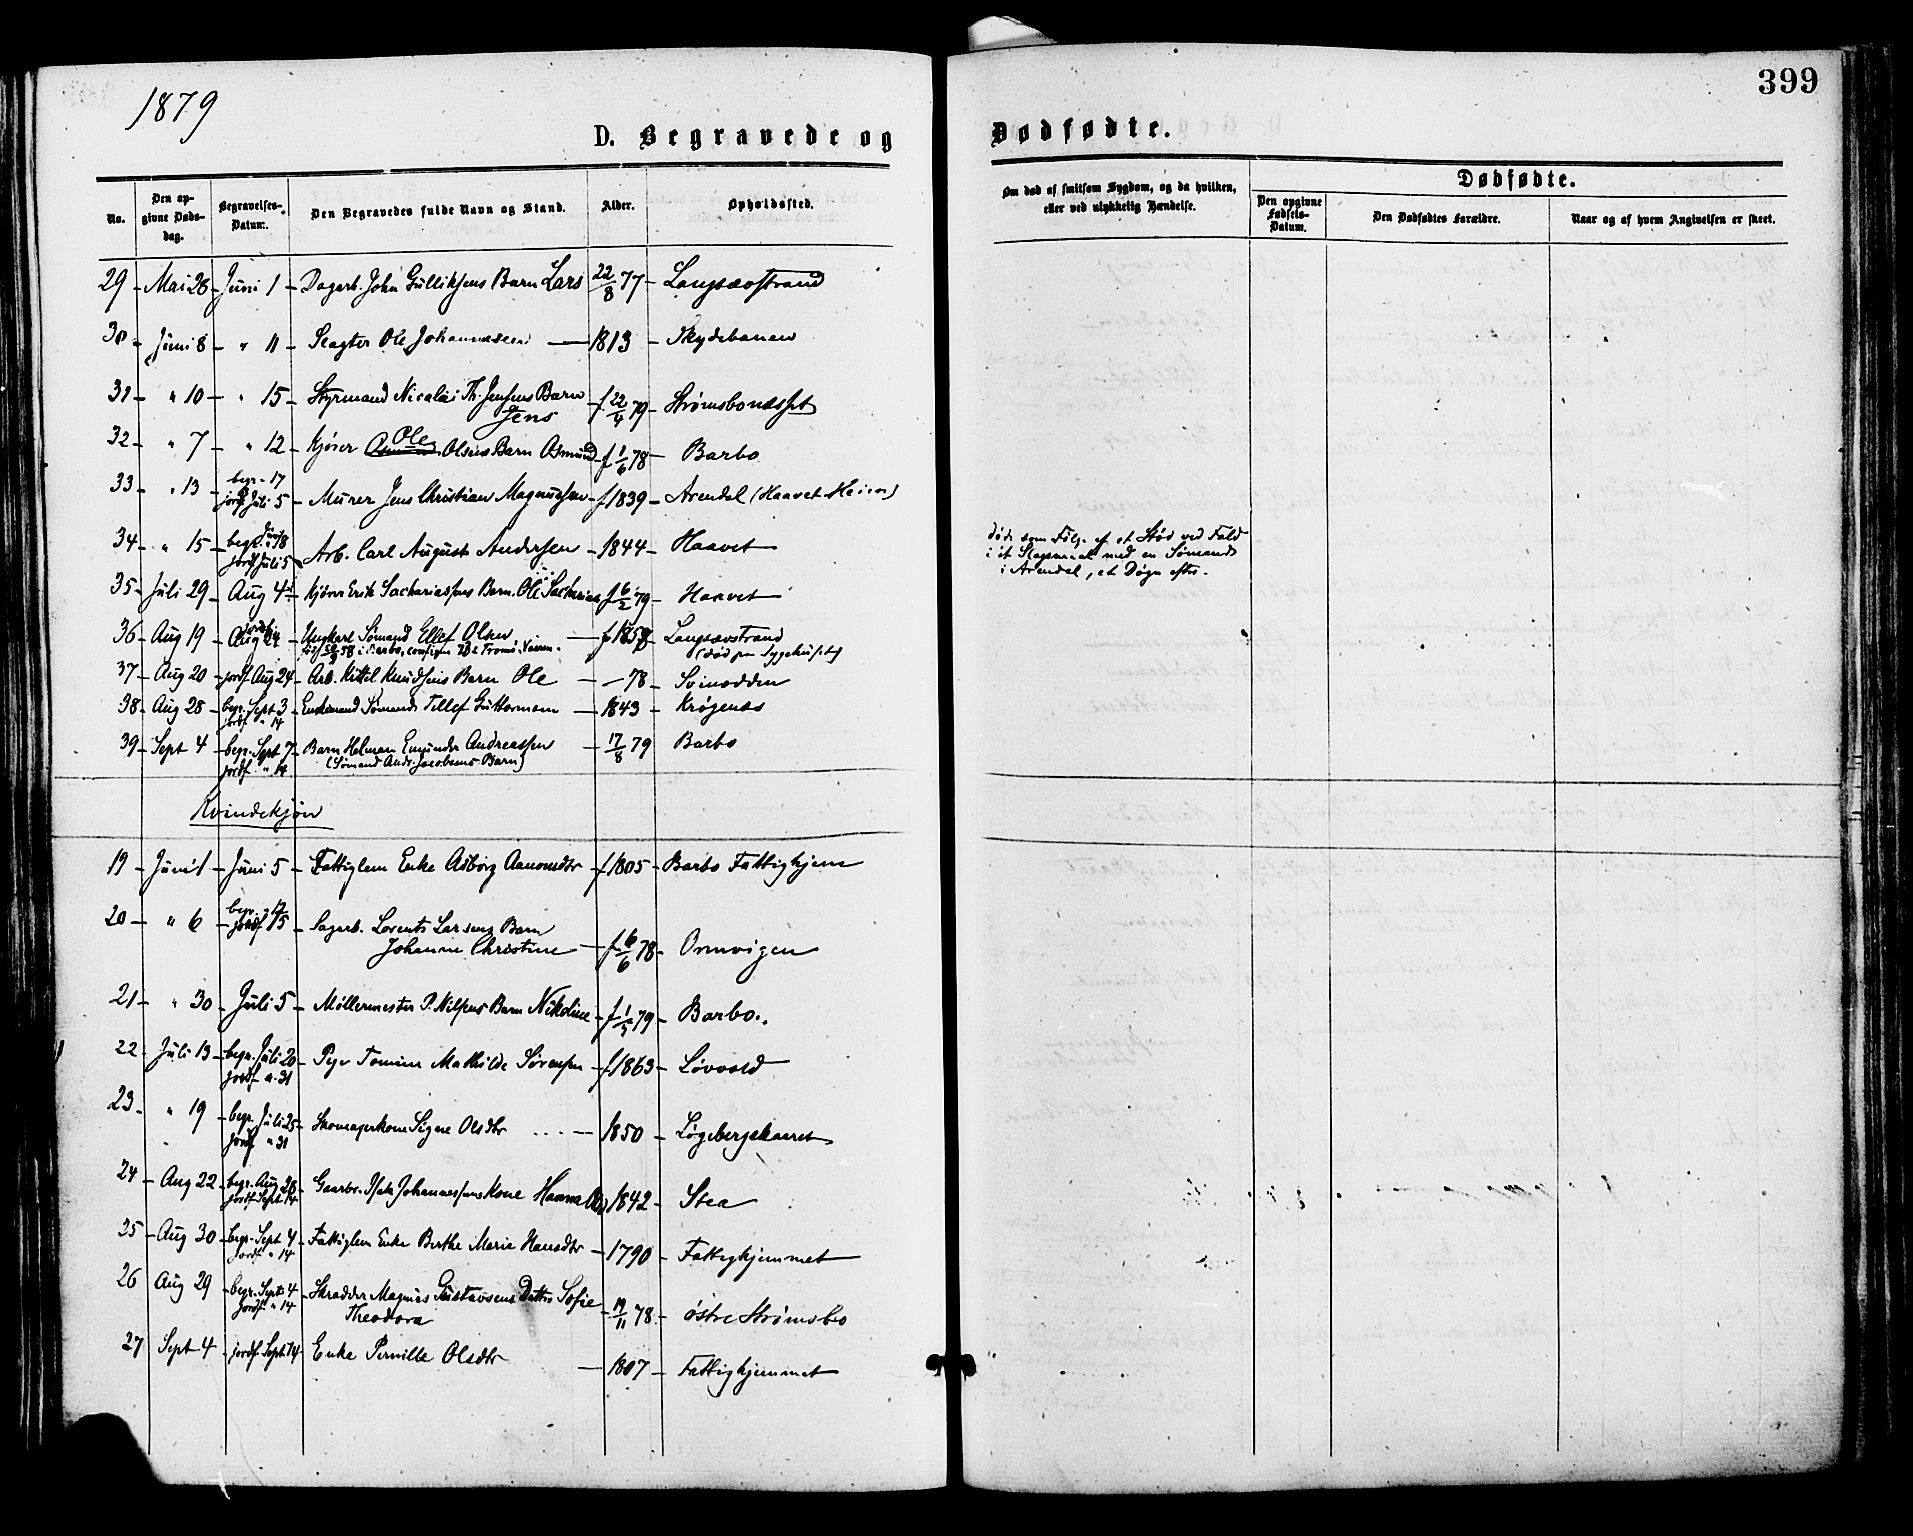 1879
399
D. Begravede og Dødfødte.
No.
Den opgivne Dødsdag.
Begravelses-Datum.
Den Begravedes fulde Navn og Stand.
Alder.
Opholdssted.
Om død af smitsom Sygdom, og da hvilken, eller ved ulykkelig Hændelse.
Dødfødte.
Den opgivne Fødsels-Datum.
Den Dødfødtes Forældre.
Naar og af hvem Angivelsen er skeet.
29 Mai 28 Juni 1 Dagarb. John Gulliksens Barn Lars 22/8 77 Langsævstrand
30 Juni 8 " 11 Slagter Ole Johannessen 1813 Skydebanen
31 " 10 " 15 Styrmand Nicolai Th. Jensens Barn Jens f. 22/4 79 Strømsbonæsset
32 " 7 " 12 Kjører Ole Olsens Barn Asmund f 1/6 78 Barbo
33 " 13 begr. " 17 jordf. Juli 5 Murer Jens Christian Magnussen f 1839 Arendel (Haavet Heien)
34 " 15 begr. Juni 18 jordf Juli 5 Arb. Carl August Andersen 1844 Haavet
døde som Følge af et Stød ved Fald
i et Slagsmaal med en Sømand
i Arendal, et Døgn efter.
35 Juli 29 Aug 4 Kjører Erik Sachariassens Barn Ole Sacharias f 6/2 79 Haavet
36 Aug 19 jordf. Aug 24 Ungkarl Sømand Ellef Olsen f 1858 Langsævstrand
i Barbo, confirm. 73 i Tromø.
(død paa Sygehuset)
37 Aug 20 jordf Aug 24 Arb. Kittil Knudsens Barn Ole 78 Svinodden
38 Aug 28 begr. Sept 3 jordf " 14 Enkemand Sømand Tellef Guttormsen 1843 Krøgenæs
39 Sept 4 begr. Sept 7 jordf. " 14 Barn Helman Emunder Andreassen 17/8 79 Barbo
(Sømand Andr. Jacobsens Barn)
Kvindekjøn
19 Juni 1 Juni 5 Fattiglem Enke Asborg Aanonsdtr f 1805 Barbo Fattighjem
20 " 6 begr. jordf Dagarb. Lorents Larsens Barn
Johanne Christine f. 6/6 78 Ormvigen
21 " 30 Juli 5 Møllermester P. Nilsens Barn Nikoline f 1/5 79 Barbo.
22 Juli 13 begr. Juli 20 jordf " 31 Pige Tomine Mathilde Sørensen f. 1863 Løvvold
23 " 19 begr. Juli 25 jordf " 31 Skomagerkone Signe Olsdtr 1850 Løgebergskaret
24 Aug 22 begr. Aug 28 jordf Sept 14 Gaardbr. Isak Johannessens Kone Hanna 1842 Stea
25 Aug 30 begr. Sept 4 jordf " 14 Fattiglem Enke Berthe Marie Hansdtr 1790 Fattighjemmet
26 Aug 29 begr. Sept 4 jordf " 14 Skrædder Magnus Gustavsens Datter Sofie
Theodora 19/11 78 østre Strømsbo
27 Sept 4 jordf. Sept 14 Enke Pernille Olsdtr 1807 Fattighjemmet